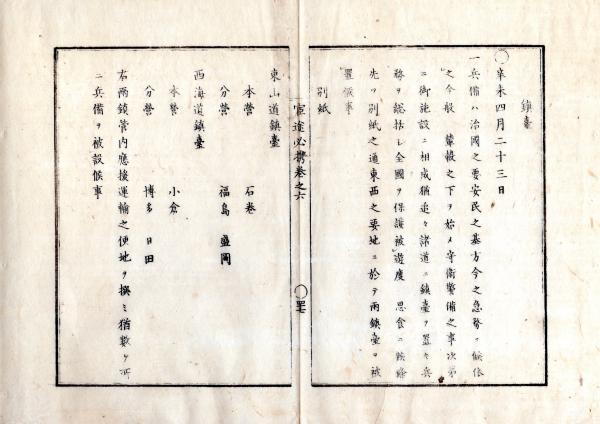 鎮臺
〇辛未四月二十三日
一兵備ハ治國之要安民之基方今之急務ニ候依
之今般輦轂之下ヲ始メ守衛警備之事次第
ニ御施設ニ相成猶追々諸道ニ鎮臺ヲ置キ兵
務ヲ總括シ全國ヲ保護被遊度思食ニ候條
先ツ別紙之通東西之要地ニ於テ兩鎮臺ヲ被
置候事
別紙
官途必携巻之六
〇
東山道鎮臺
本營 石巻
分營 福島 盛岡
西海道鎮臺
本營 小倉
分營 博多 日田
右兩鎮管内應援運輸之便地ヲ撰ミ猶數ケ所
ニ兵備ヲ被設候事